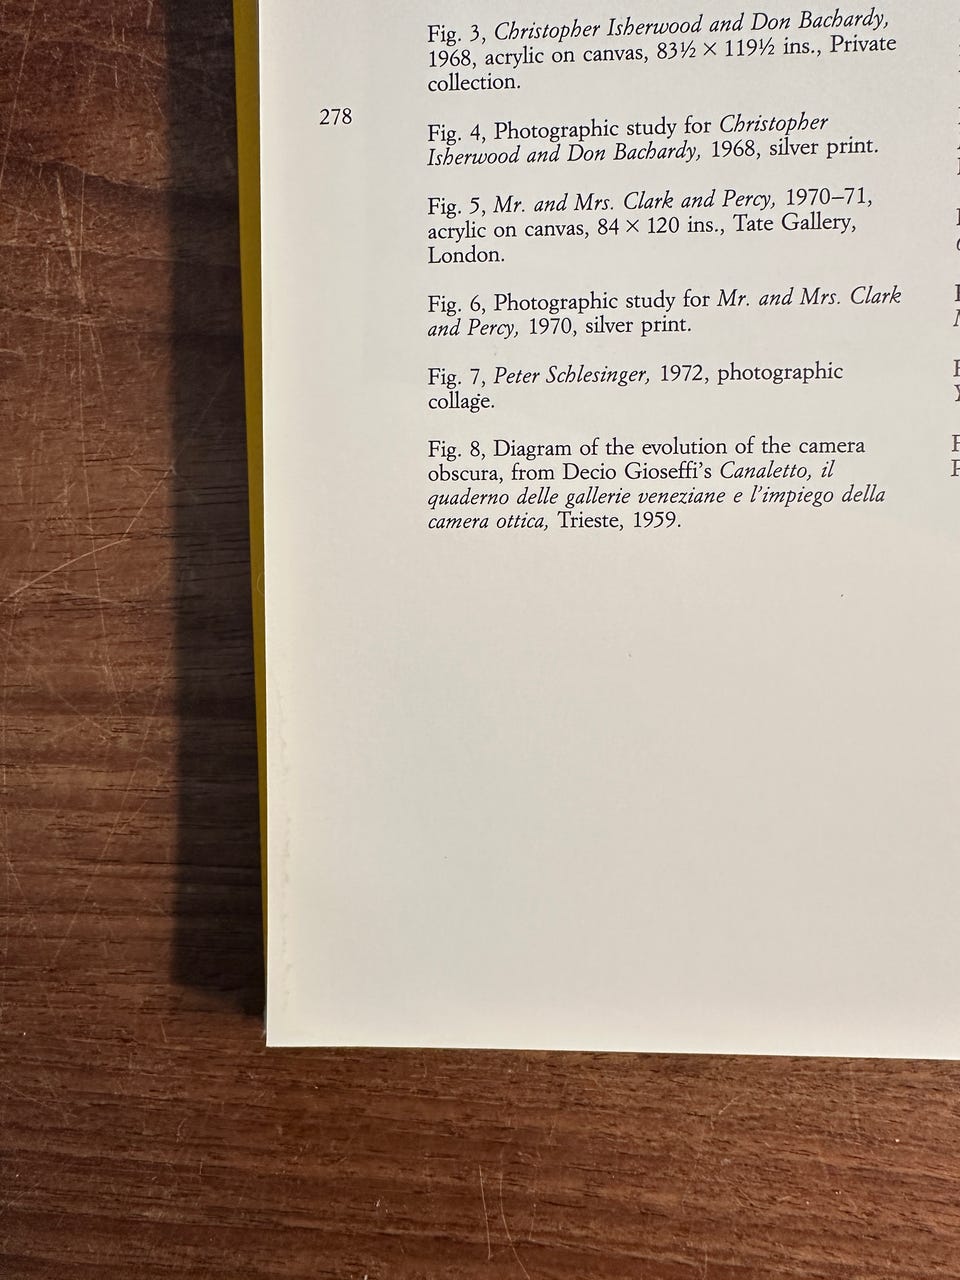 Fig. 3, Christopher Isherwood and Don Bachardy,
1968, acrylic on canvas, 83½ × 119½ ins., Private
collection.
278
Fig. 4, Photographic study for Christopher
Isherwood and Don Bachardy, 1968, silver print.
Fig. 5, Mr. and Mrs. Clark and Percy, 1970–71,
acrylic on canvas, 84 × 120 ins., Tate Gallery,
London.
Fig. 6, Photographic study for Mr. and Mrs. Clark
and Percy, 1970, silver print.
Fig. 7, Peter Schlesinger, 1972, photographic
collage.
Fig. 8, Diagram of the evolution of the camera
obscura, from Decio Gioseffi's Canaletto, il
quaderno delle gallerie veneziane e l'impiego della
camera ottica, Trieste, 1959.